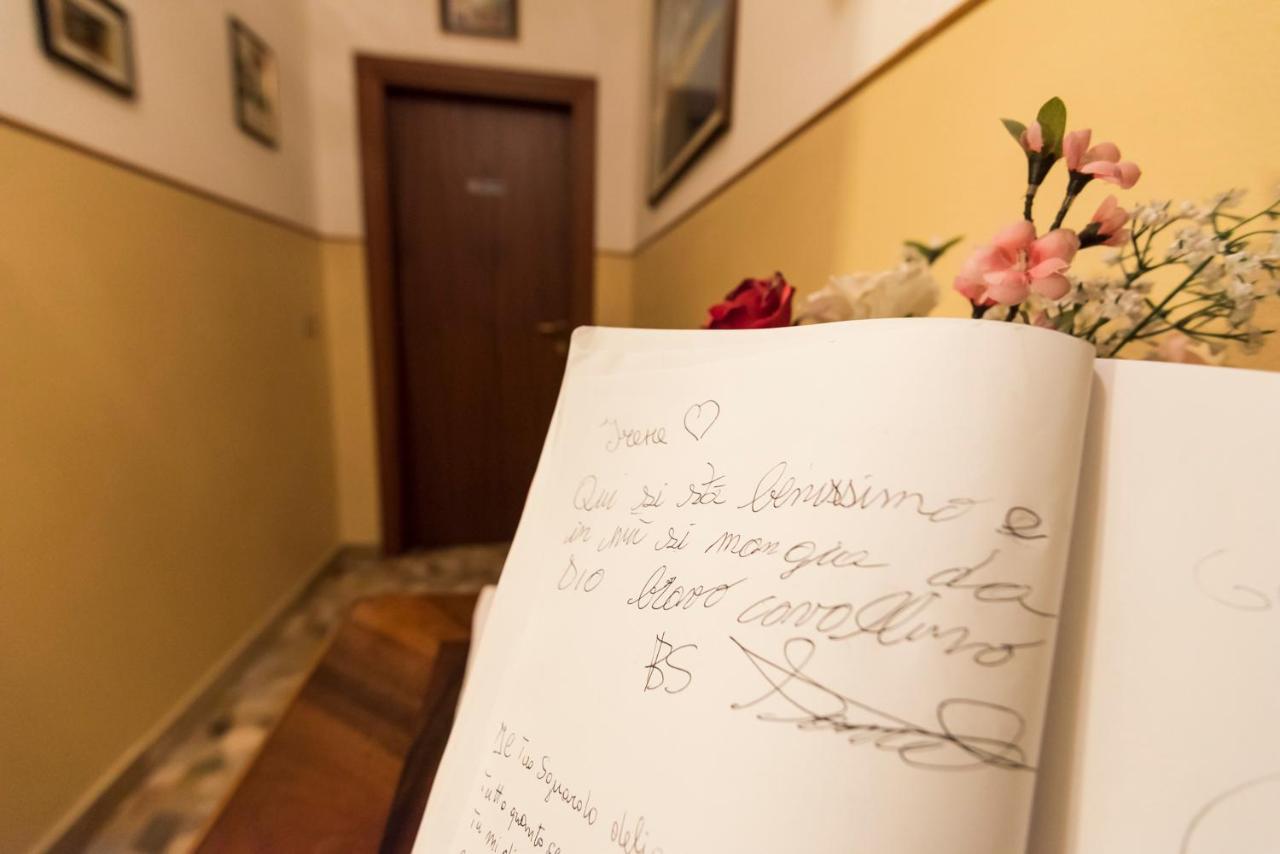 Irene ♡
Qui si stà benissimo e
in più si mangia da
Dio bravo cavallino
BS
Nel Tuo Sguardo deli
Tutto quanto
Tu mi di